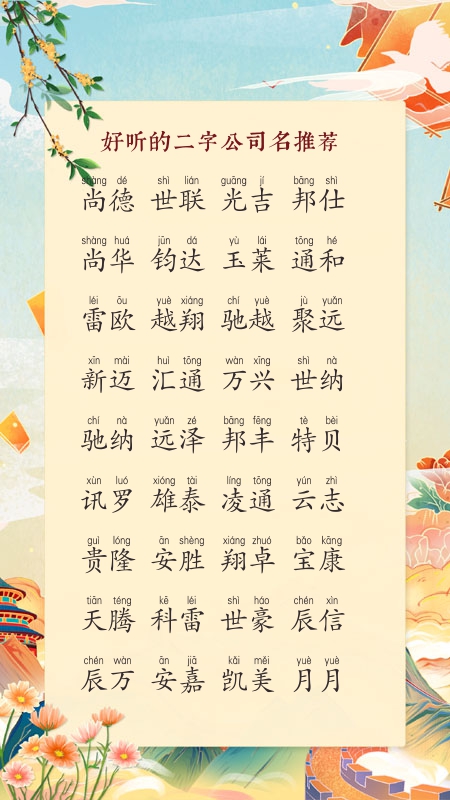 好听的二字公司名推荐
shàng dé shì lián guāng jí bāng shì
尚德 世联 光吉 邦仕
shàng huá jūn dá yù lái tōng hé
尚华 钧达 玉莱 通和
léi ōu yuè xiáng chí yuè jù yuǎn
雷欧 越翔 驰越 聚远
xīn mài huì tōng wàn xīng shì nà
新迈 汇通 万兴 世纳
chí nà yuǎn zé bāng fēng tè bèi
驰纳 远泽 邦丰 特贝
xùn luó xióng tài líng tōng yún zhì
讯罗 雄泰 凌通 云志
guì lóng ān shèng xiáng zhuó bǎo kāng
贵隆 安胜 翔卓 宝康
tiān téng kē léi shì háo chén xìn
天腾 科雷 世豪 辰信
chén wàn ān jiā kǎi měi yuè yuè
辰万 安嘉 凯美 月月